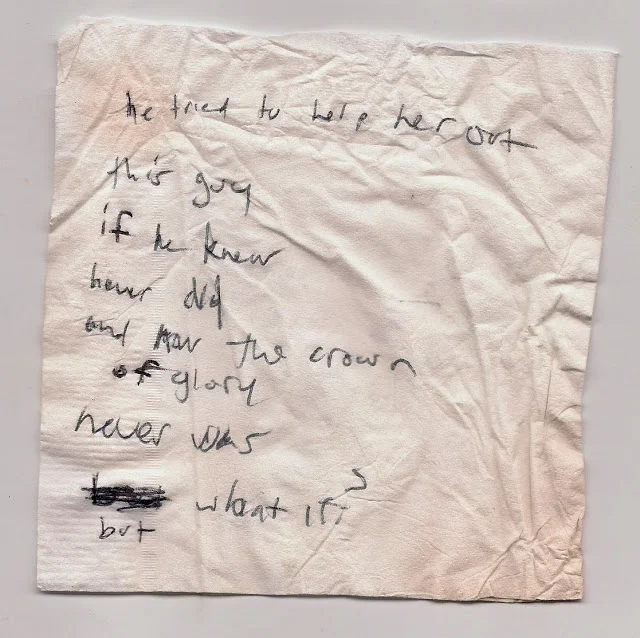 he tried to help her out
this guy
if he knew
never did
and the crown
of glory
never was
what
but